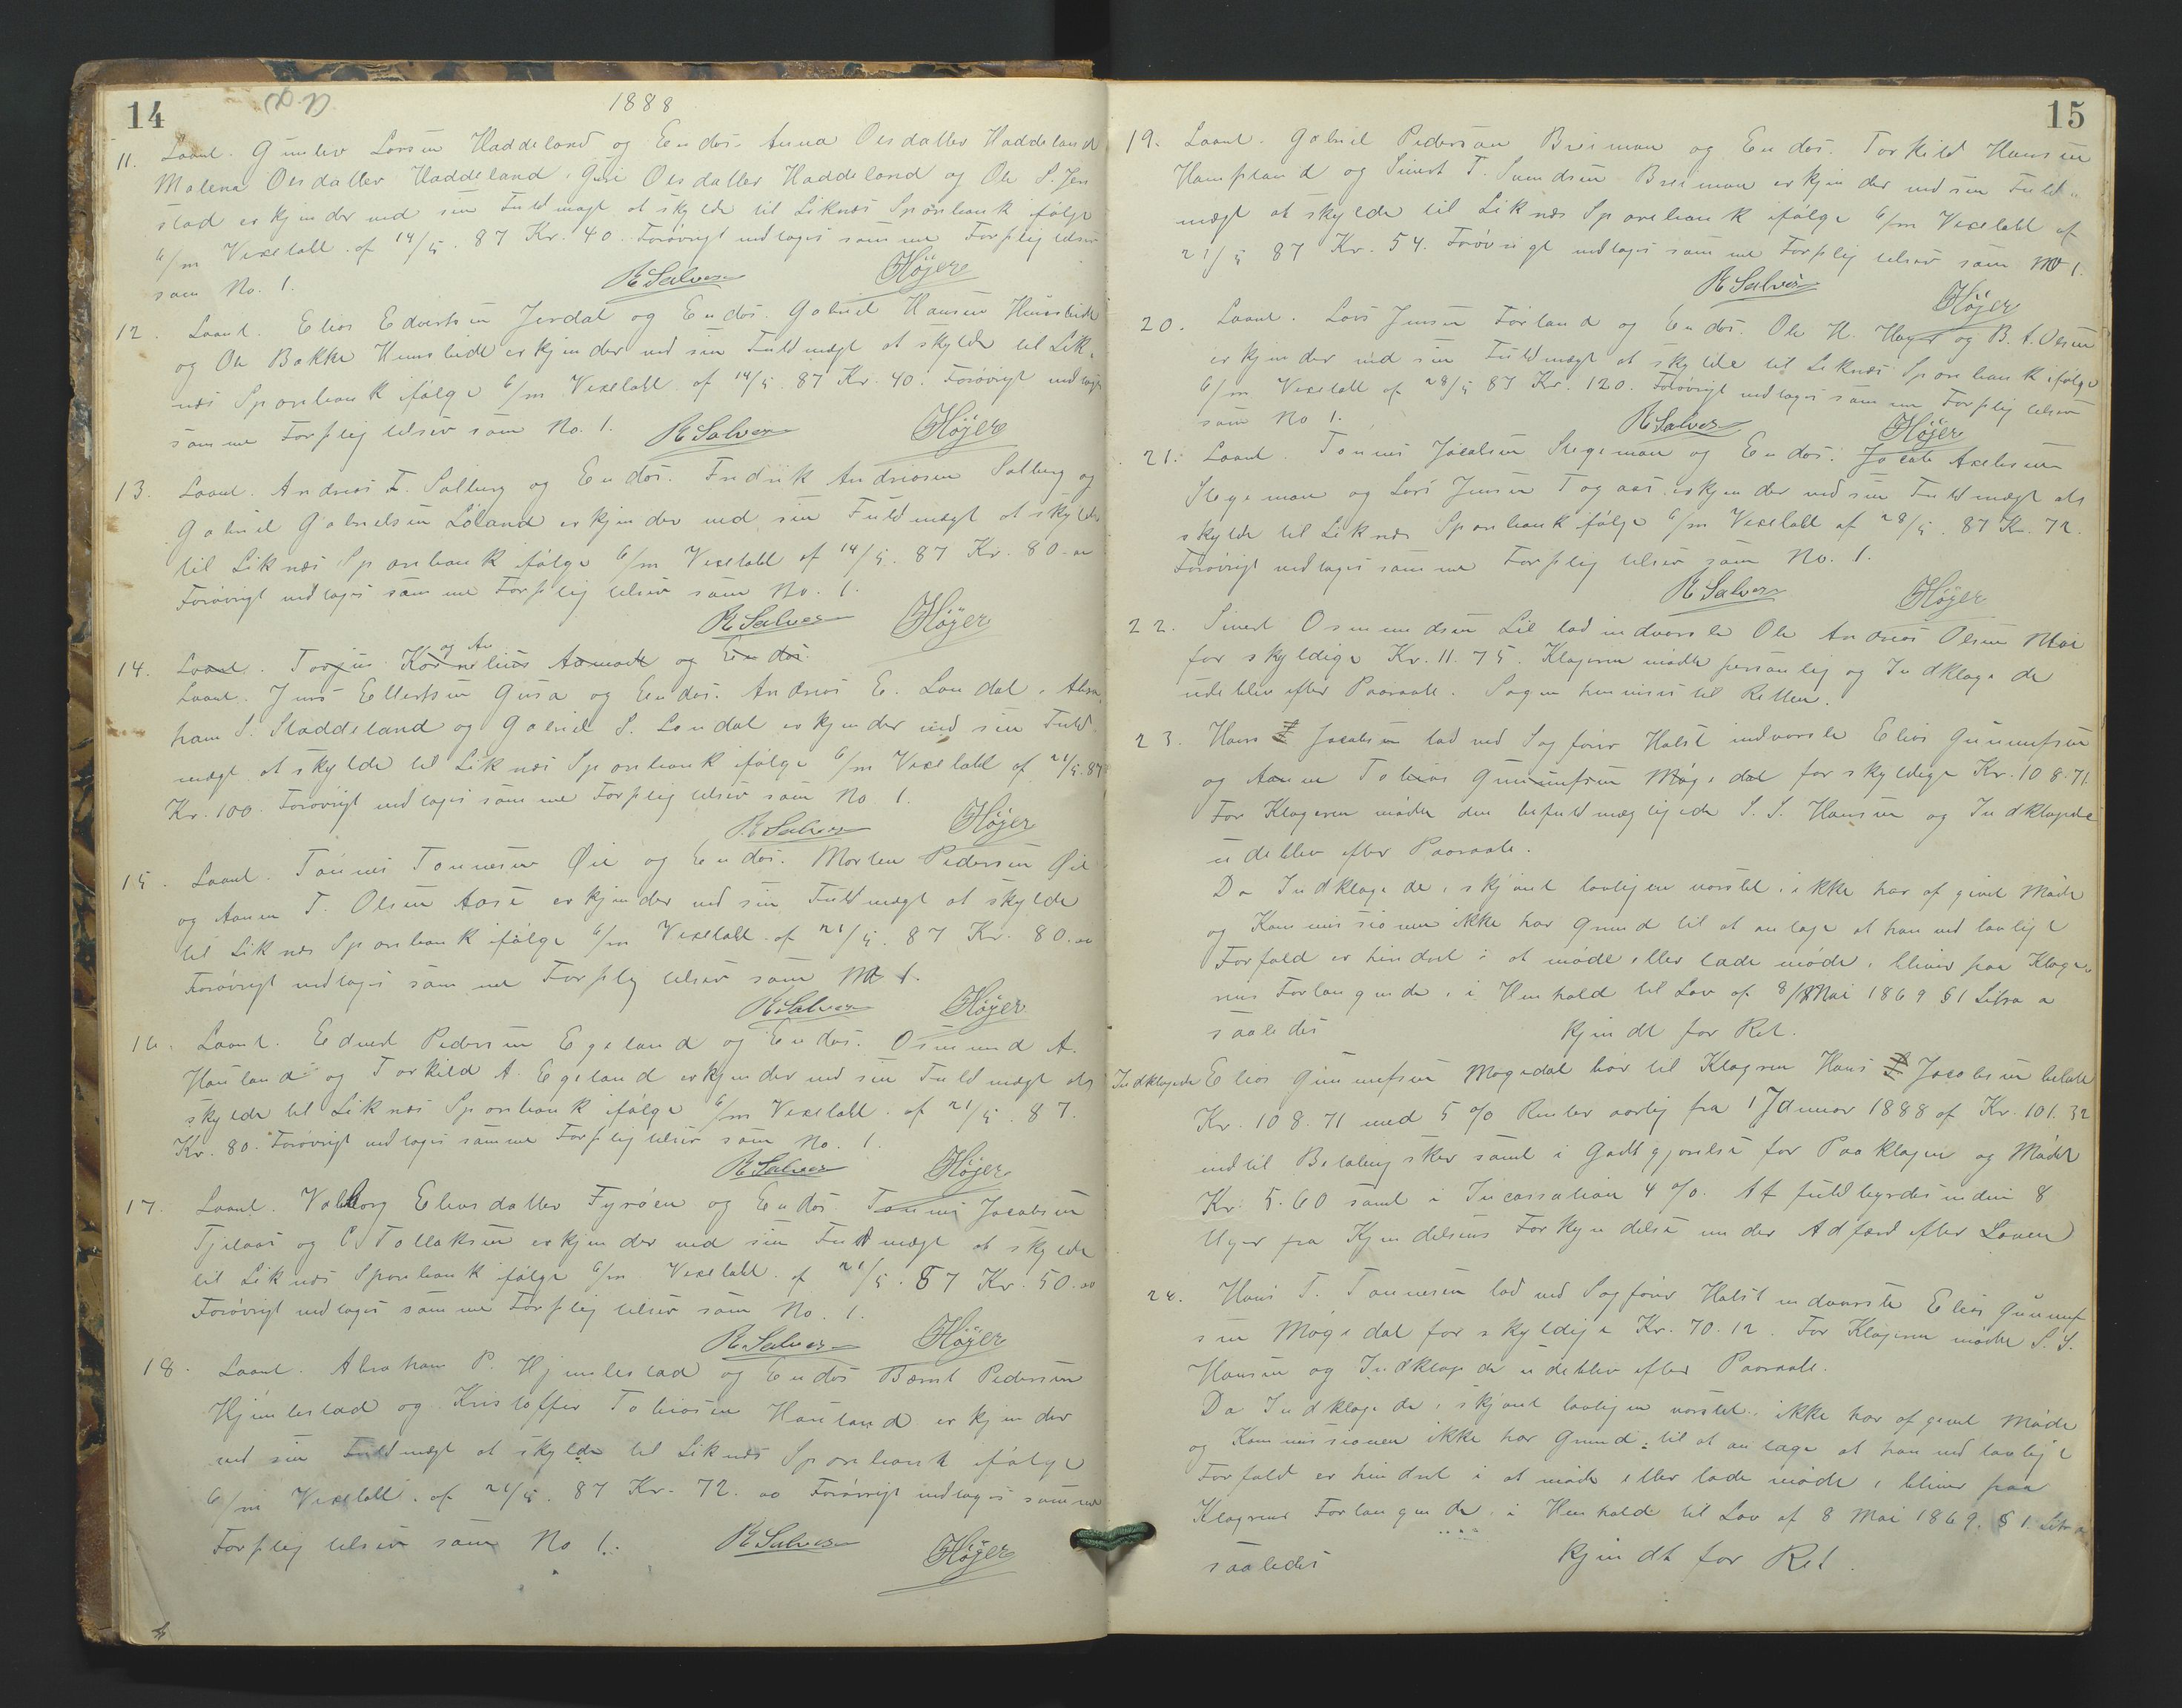 14
1888
11. Laant. Gunlev Larsen Haddeland og Endos. Anna Olsdatter Haddeland
Malena Olsdatter Haddeland, Guri Olsdatter Haddeland og Ole S. Jer
stad erkjender ved sin Fuldmægt at skylde til Liknes Sparebank ifølge
6/m Vexelobl. af 14/5. 87 Kr. 40. Forøvrigt vedtages samme Forpligtelser
som No. 1.
R Salves Höyer
12. Laant. Elias Edvertsen Jerdal og Endos. Gabriel Hansen Hunsbedt
og Ole Bakke Hunsbedt erkjender ved sin Fuldmægt at skylde til Lik-
nes Sparebank ifølge 6/m Vexelobl. af 14/5. 87 Kr. 40. Forøvrigt vedtages
samme Forpligtelser som No. 1. R Salves Höyer
13. Laant. Andreas F. Solberg og Endos. Fredrik Andreasen Solberg og
Gabriel Gabrielsen Löland erkjender ved sin Fuldmægt at skylde
til Liknes Sparebank ifølge 6/m Vexelobl af 14/5. 87 Kr. 80.00
Forøvrigt vedtages samme Forpligtelser som No. 1.
R Salves Höyer
14. Laant. Torjus Kornelius Aamodt og Endos.
Laant. Jens Ellertsen Gusa og Endos. Andreas E. Londal, Abra
ham S. Staddeland og Gabriel S. Londal erkjender ved sin Fuld
mægt at skylde til Liknes Sparebank ifølge 6/m Vexelobl af 21/5. 87
Kr. 100. Forøvrigt vedtages samme Forpligtelser som No 1.
R Salves Höyer
15. Laant. Tönnes Tönnesen Øie og Endos. Morten Pedersen Øie
og Aanen T. Olsen Aase erkjender ved sin Fuldmægt at skylde
til Liknes Sparebank ifølge 6/m Vexelobl. af 21/5. 87 Kr. 80.00
Forøvrigt vedtages samme Forpligtelser som No 1.
R Salves Höyer
16. Laant. Edvert Pedersen Egeland og Endos. Osmund A.
Hauland og Torkild A. Egeland erkjender ved sin Fuldmægt at
skylde til Liknes Sparebank ifølge 6/m Vexelobl. af 21/5. 87.
Kr. 80. Forøvrigt vedtages samme Forpligtelser som No. 1.
R Salves Höyer
17. Laant. Valborg Eliasdatter Fyröen og Endos Tönnes Jacobsen
Tjelaas og C Tollaksen erkjender ved sin Fuldmægt at skylde
til Liknes Sparebank ifølge 6/m Vexelobl. af 21/5. 87 Kr. 50.00
Forøvrigt vedtages samme Forpligtelser som No. 1.
R Salves Höyer
18. Laant. Abraham P. Hjemlestad og Endos Bernt Pedersen
Hjemlestad og Kristoffer Tobiasen Hauland erkjender
ved sin Fuldmægt at skylde til Liknes Sparebank ifølge
6/m Vexelobl. af 21/5. 87 Kr. 72.00 Forøvrigt vedtages samme
Forpligtelser som No 1. R Salves Höyer
15
19. Laant. Gabriel Pedersen Breiman og Endos. Torkild Hansen
Hompland og Sivert T. Svendsen Breiman erkjender ved sin Fuld-
mægt at skylde til Liknes Sparebank ifølge 6/m Vexelobl af
21/5 87 Kr. 54. Forøvrigt vedtages samme Forpligtelser som No 1.
R Salves Höyer
20. Laant. Lars Jensen Förland og Endos. Ole H. Haget og B. A. Olsen
erkjender ved sin Fuldmægt at skylde til Liknes Sparebank ifølge
6/m Vexelobl af 28/5 87 Kr. 120. Forøvrigt vedtages samme Forpligtelser
som No 1. R Salves Höyer
21. Laant. Tönnes Jacobsen Stegeman og Endos. Jacob Axelsen
Stegeman og Lars Jensen Togaas erkjender ved sin Fuldmægt at
skylde til Liknes Sparebank ifølge 6/m Vexelobl af 28/5. 87 Kr. 72.
Forøvrigt vedtages samme Forpligtelser som No. 1.
R Salves Höyer
22. Sivert Osmundsen Lie lod indvarsle Ole Andreas Olsen
for skyldige Kr. 11.75. Klageren mødte personlig og Indklagede
udeblev efter Paaraab. Sagen henvises til Retten.
23. Hans Jacobsen lod ved Sagfører Holst indvarsle Elias Gunnufsen
og Aanen Tobias Gunnufsen Mogedal for skyldige Kr. 108.71.
For Klageren mødte den befuldmægtigede S. S. Hansen og Indklagede
udeblev efter Paaraab.
Da Indklagede, skjønt lovligen varslet, ikke har afgivet Møde
og Kommissionen ikke har Grund til at antage at han ved lovligt
Forfald er hindret i at møde eller lade møde, bliver paa Klage-
rens Forlangende, i Henhold til Lov af 8/8 Mai 1869 § 1 Litra a
saaledes kjendt for Ret.
Indklagede Elias Gunnufsen Mogedal bør til Klageren Hans Jacobsen betale
Kr. 108.71 med 5 % Renter aarlig fra 1 Januar 1888 af Kr. 101.32
indtil Betaling sker samt i Godtgjørelse for Paaklagen og Mødet
Kr. 5.60 samt i Incassation 4 %. At fuldbyrdes inden 8
Uger fra Kjendelsens Forkyndelse under Adfærd efter Loven
24. Hans T. Tönnesen lod ved Sagfører Holst indvarsle Elias Gunnuf
sen Mogedal for skyldige Kr. 70.12. For Klageren mødte S. S.
Hansen og Indklagede udeblev efter Paaraab.
Da Indklagede, skjønt lovligen varslet, ikke har afgivet Møde
og Kommissionen ikke har Grund til at antage at han ved lovligt
Forfald er hindret i at møde eller lade møde, bliver paa
Klagerens Forlangende, i Henhold til Lov af 8 Mai 1869. § 1. Litra a
saaledes kjendt for Ret.